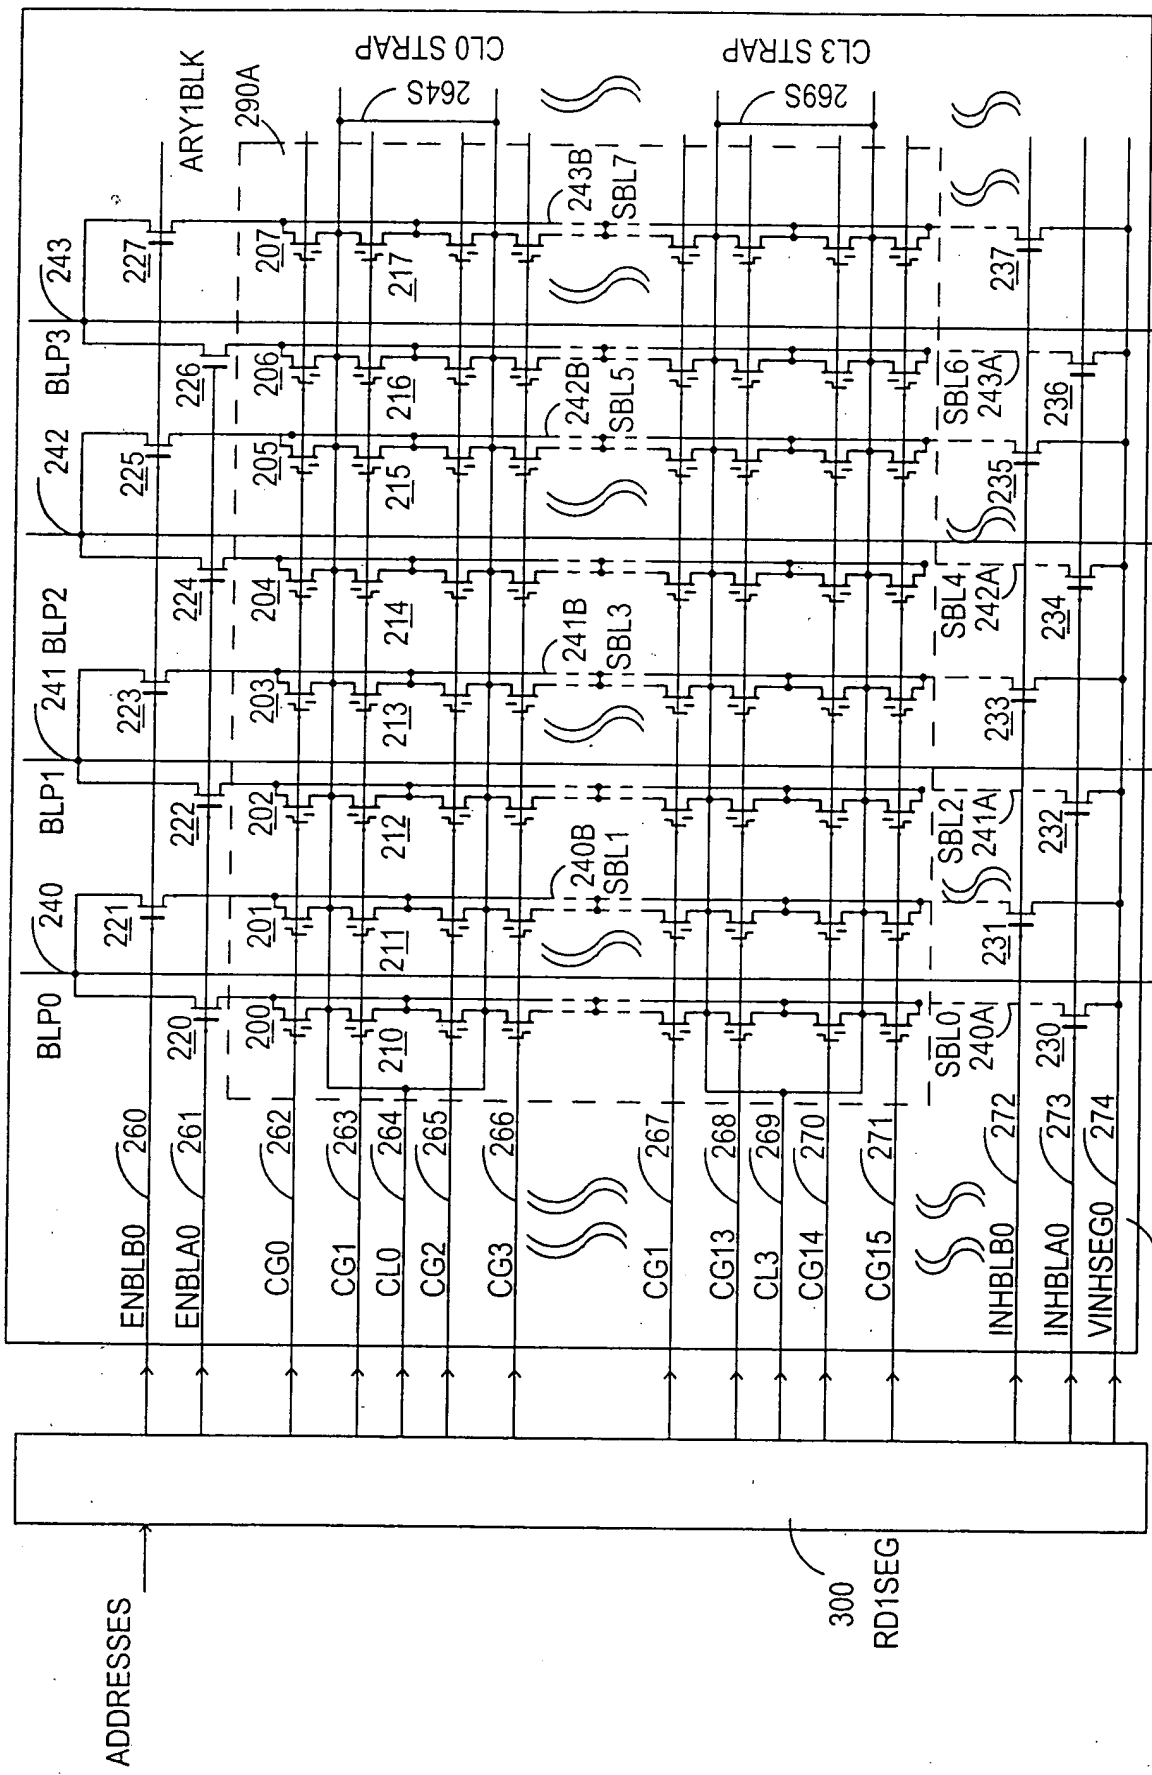 ADDRESSES
300
RD1SEG
ENBLB0 260
ENBLA0 261
CG0 262
CG1 263
CL0 264
CG2 265
CG3 266
CG1 267
CG13 268
CL3 269
CG14 270
CG15 271
INHBLB0 272
INHBLA0 273
VINHSEG0 274
BLP0 240
BLP1 241
BLP2 242
BLP3 243
ARY1BLK
290A
220 221 222 223 224 225 226 227
200 201 202 203 204 205 206 207
210 211 212 213 214 215 216 217
240B
SBL1
241B
SBL3
242B
SBL5
243B
SBL7
SBL0
240A
SBL2
241A
SBL4
242A
SBL6
243A
230 231 232 233 234 235 236 237
264S
CL0 STRAP
269S
CL3 STRAP